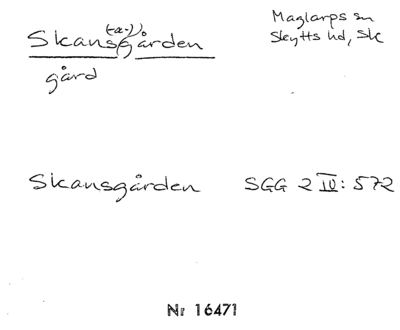 Skans(-a-)gården
gård
Maglarps sn
Skytts hd, Sk
Skansgården SGG 2 IV: 572
Nr 16471